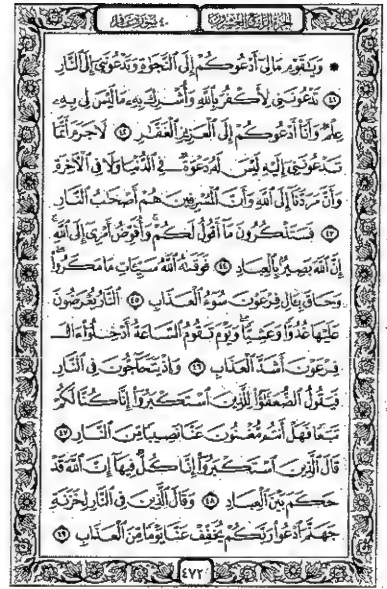 الجزء الرابع والعشرون
٤٠ سورة غافر
۞ وَيَٰقَوْمِ مَا لِىٓ أَدْعُوكُمْ إِلَى ٱلنَّجَوٰةِ وَتَدْعُونَنِىٓ إِلَى ٱلنَّارِ
٤١ تَدْعُونَنِى لِأَكْفُرَ بِٱللَّهِ وَأُشْرِكَ بِهِۦ مَا لَيْسَ لِى بِهِۦ
عِلْمٌ وَأَنَا۠ أَدْعُوكُمْ إِلَى ٱلْعَزِيزِ ٱلْغَفَّٰرِ ٤٢ لَا جَرَمَ أَنَّمَا
تَدْعُونَنِىٓ إِلَيْهِ لَيْسَ لَهُۥ دَعْوَةٌ فِى ٱلدُّنْيَا وَلَا فِى ٱلْءَاخِرَةِ
وَأَنَّ مَرَدَّنَآ إِلَى ٱللَّهِ وَأَنَّ ٱلْمُسْرِفِينَ هُمْ أَصْحَٰبُ ٱلنَّارِ
٤٣ فَسَتَذْكُرُونَ مَآ أَقُولُ لَكُمْ ۚ وَأُفَوِّضُ أَمْرِىٓ إِلَى ٱللَّهِ ۚ
إِنَّ ٱللَّهَ بَصِيرٌۢ بِٱلْعِبَادِ ٤٤ فَوَقَىٰهُ ٱللَّهُ سَيِّـَٔاتِ مَا مَكَرُوا۟ ۖ
وَحَاقَ بِـَٔالِ فِرْعَوْنَ سُوٓءُ ٱلْعَذَابِ ٤٥ ٱلنَّارُ يُعْرَضُونَ
عَلَيْهَا غُدُوًّا وَعَشِيًّا ۖ وَيَوْمَ تَقُومُ ٱلسَّاعَةُ أَدْخِلُوٓا۟ ءَالَ
فِرْعَوْنَ أَشَدَّ ٱلْعَذَابِ ٤٦ وَإِذْ يَتَحَآجُّونَ فِى ٱلنَّارِ
فَيَقُولُ ٱلضُّعَفَٰٓؤُا۟ لِلَّذِينَ ٱسْتَكْبَرُوٓا۟ إِنَّا كُنَّا لَكُمْ
تَبَعًا فَهَلْ أَنتُم مُّغْنُونَ عَنَّا نَصِيبًا مِّنَ ٱلنَّارِ ٤٧
قَالَ ٱلَّذِينَ ٱسْتَكْبَرُوٓا۟ إِنَّا كُلٌّ فِيهَآ إِنَّ ٱللَّهَ قَدْ
حَكَمَ بَيْنَ ٱلْعِبَادِ ٤٨ وَقَالَ ٱلَّذِينَ فِى ٱلنَّارِ لِخَزَنَةِ
جَهَنَّمَ ٱدْعُوا۟ رَبَّكُمْ يُخَفِّفْ عَنَّا يَوْمًا مِّنَ ٱلْعَذَابِ ٤٩
٤٧٢